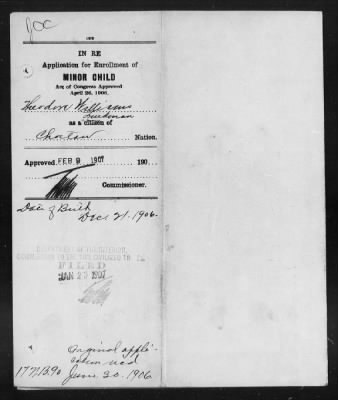 IN RE
Application for Enrollment of
MINOR CHILD
Act of Congress Approved
April 26, 1906.
Theodore Williams
as a citizen of
Choctaw Nation.
Approved FEB 9 1907 190
Commissioner.
Date of Birth
Dec 21. 1906.
DEPARTMENT OF THE INTERIOR,
COMMISSION TO THE FIVE CIVILIZED TR
FILED
JAN 23 1907
Original appli-
cation recd
June 30. 1906